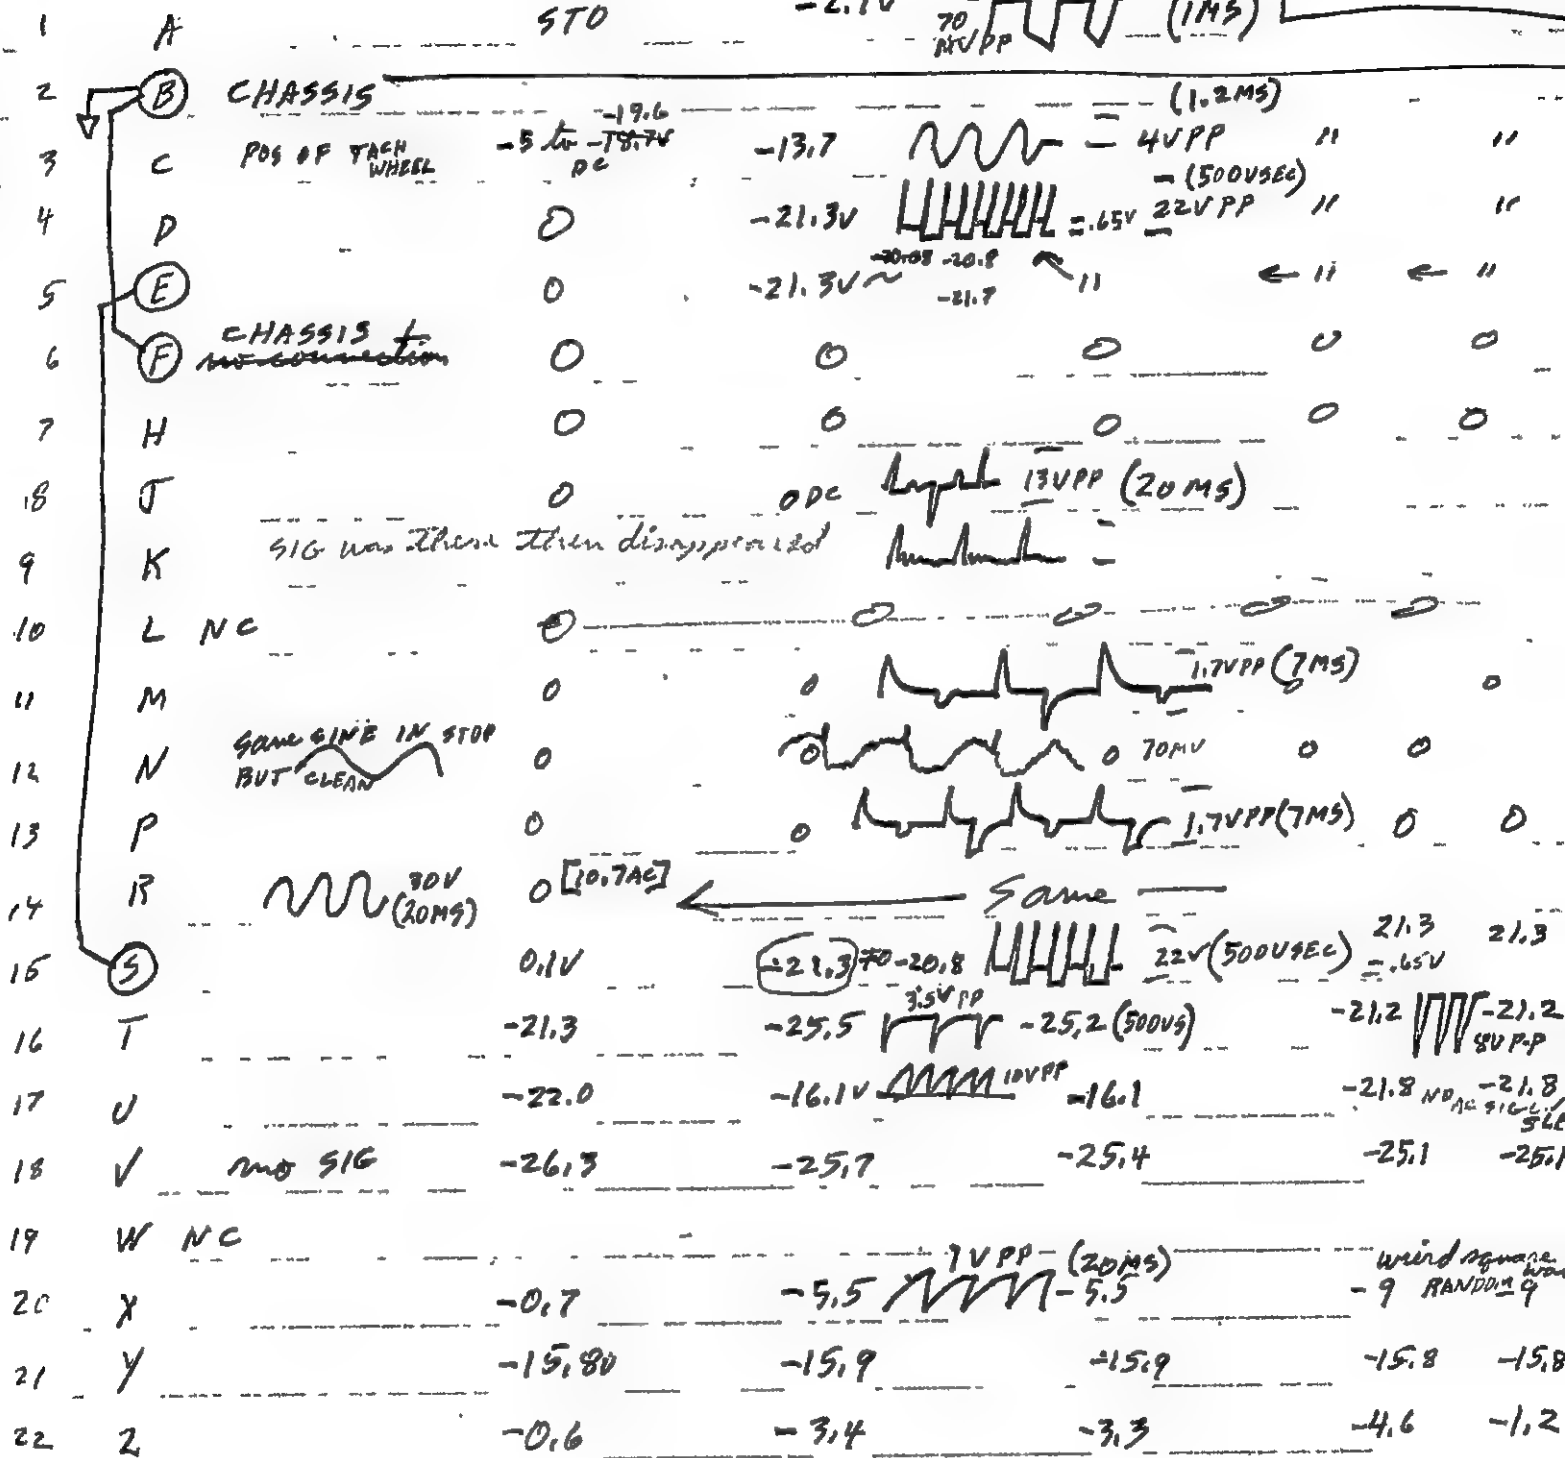 1 A STO -2.1V 70 MVPP (1MS)
2 B CHASSIS (1.2MS)
3 C POS OF TACH WHEEL -5 to -18.7V -19.6 DC -13.7 4VPP " "
4 D 0 -21.3V =.65V 22VPP (500USEC) " "
5 E 0 -21.3V ~ -20.8 -21.7 " ← " ← "
6 F CHASSIS no connection 0 0 0 0 0
7 H 0 0 0 0 0
8 J 0 0DC 13VPP (20MS)
9 K SIG was there then disappeared
10 L NC 0 0 0 0 0
11 M 0 0 1.7VPP (7MS) 0 0
12 N Same SINE IN STOP BUT CLEAN 0 0 0 70MV 0 0
13 P 0 0 1.7VPP (7MS) 0 0
14 R 30V (20MS) 0 [10.7AC] ← Same
15 S 0.1V -21.3 TO -20.8 22V (500USEC) =.65V 21.3 21.3
16 T -21.3 -25.5 3.5VPP -25.2 (500US) -21.2 -21.2 8VP-P
17 U -22.0 -16.1V 10VPP -16.1 -21.8 NO AC SIG -21.8
18 V no SIG -26.3 -25.7 -25.4 -25.1 -25.1
19 W NC
20 X -0.7 -5.5 7VPP (20MS) -5.5 -9 weird square RANDOM -9
21 Y -15.80 -15.9 -15.9 -15.8 -15.8
22 Z -0.6 -3.4 -3.3 -4.6 -1.2